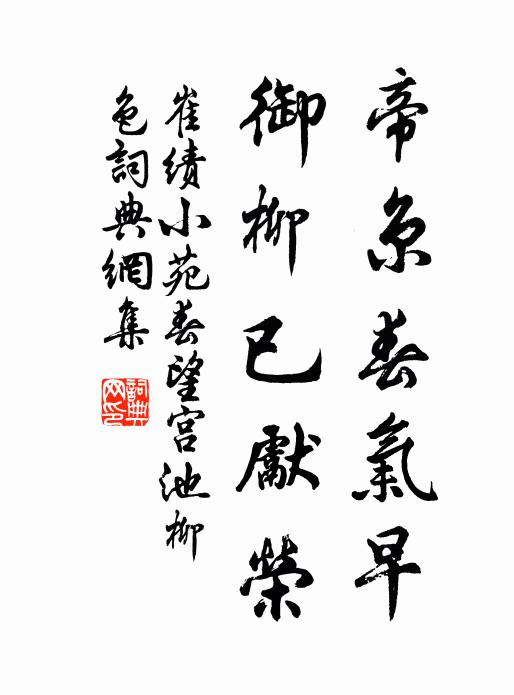 帝京春氣早
御柳已獻榮
崔績小苑春望宮池柳
色詞典網集
詞典
网印